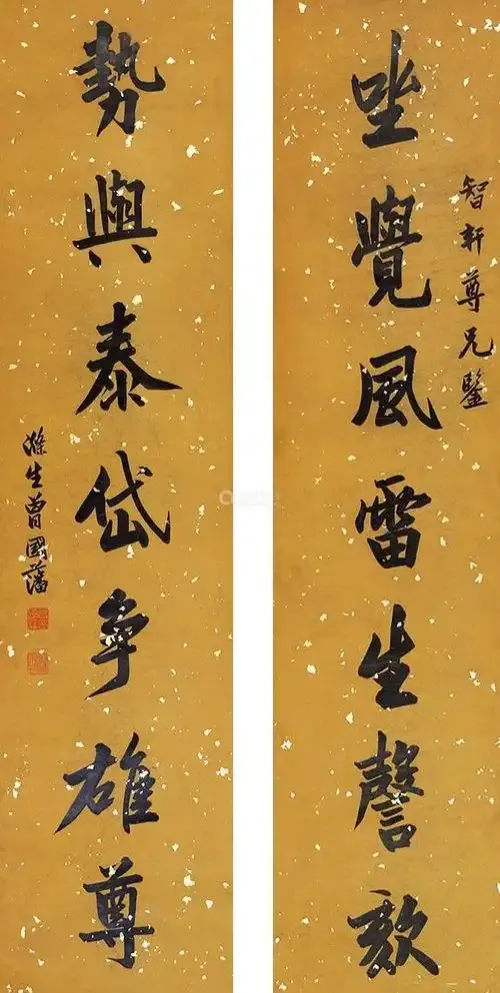 智軒尊兄鑒
坐覺風雷生謦欬
勢與泰岱爭雄尊
滌生曾國藩